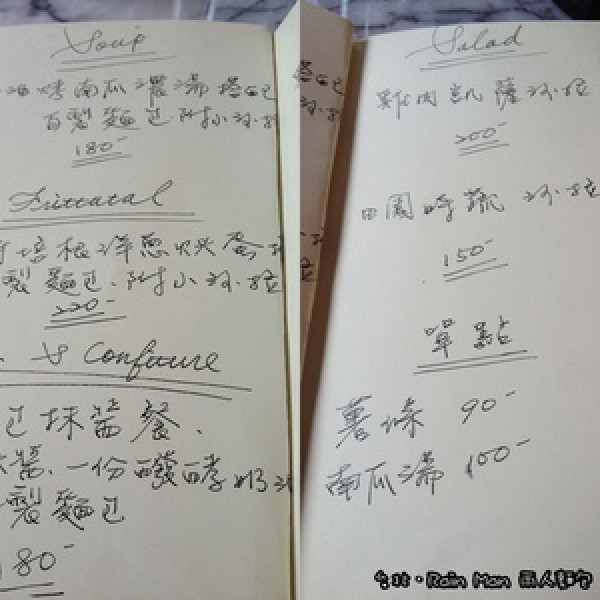 Soup
烤南瓜濃湯搭配
自製麵包.附小沙拉
180-
Frittatal
培根洋蔥烘蛋
製麵包.附小沙拉
220-
& Confiture
包抹醬餐.
醬.一份發酵奶油
製麵包
180-
Salad
雞肉凱薩沙拉
200-
田園時蔬沙拉
150-
單點
薯條 90-
南瓜湯 100-
台北・Rain Man 雨人部勺